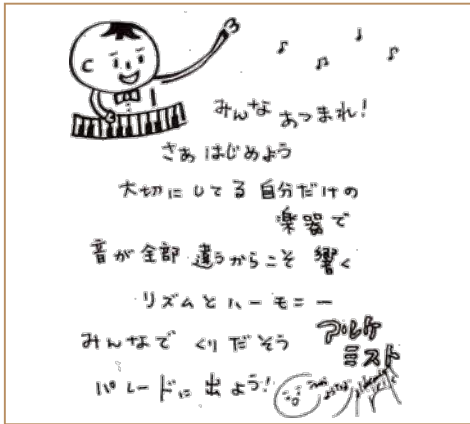 みんな あつまれ!
さあ はじめよう
大切にしてる 自分だけの
楽器で
音が全部 違うからこそ 響く
リズムとハーモニー
みんなで くりだそう
パレードに 出よう!
アルケ
ミスト